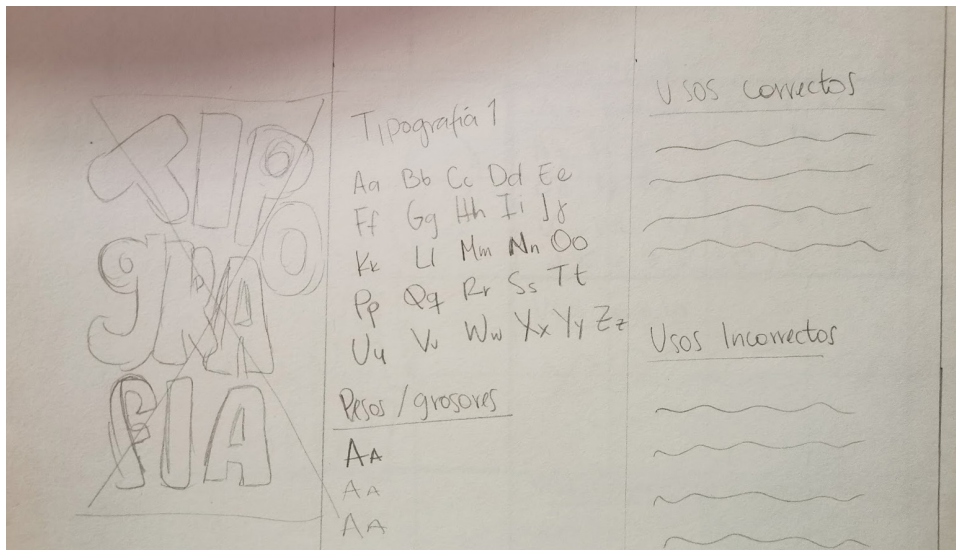 TIPO
gRA
FIA
Tipografía 1
Aa Bb Cc Dd Ee
Ff Gg Hh Ii Jj
Kk Ll Mm Nn Oo
Pp Qq Rr Ss Tt
Uu Vv Ww Xx Yy Zz
Pesos / grosores
AA
AA
AA
Usos correctos
Usos Incorrectos